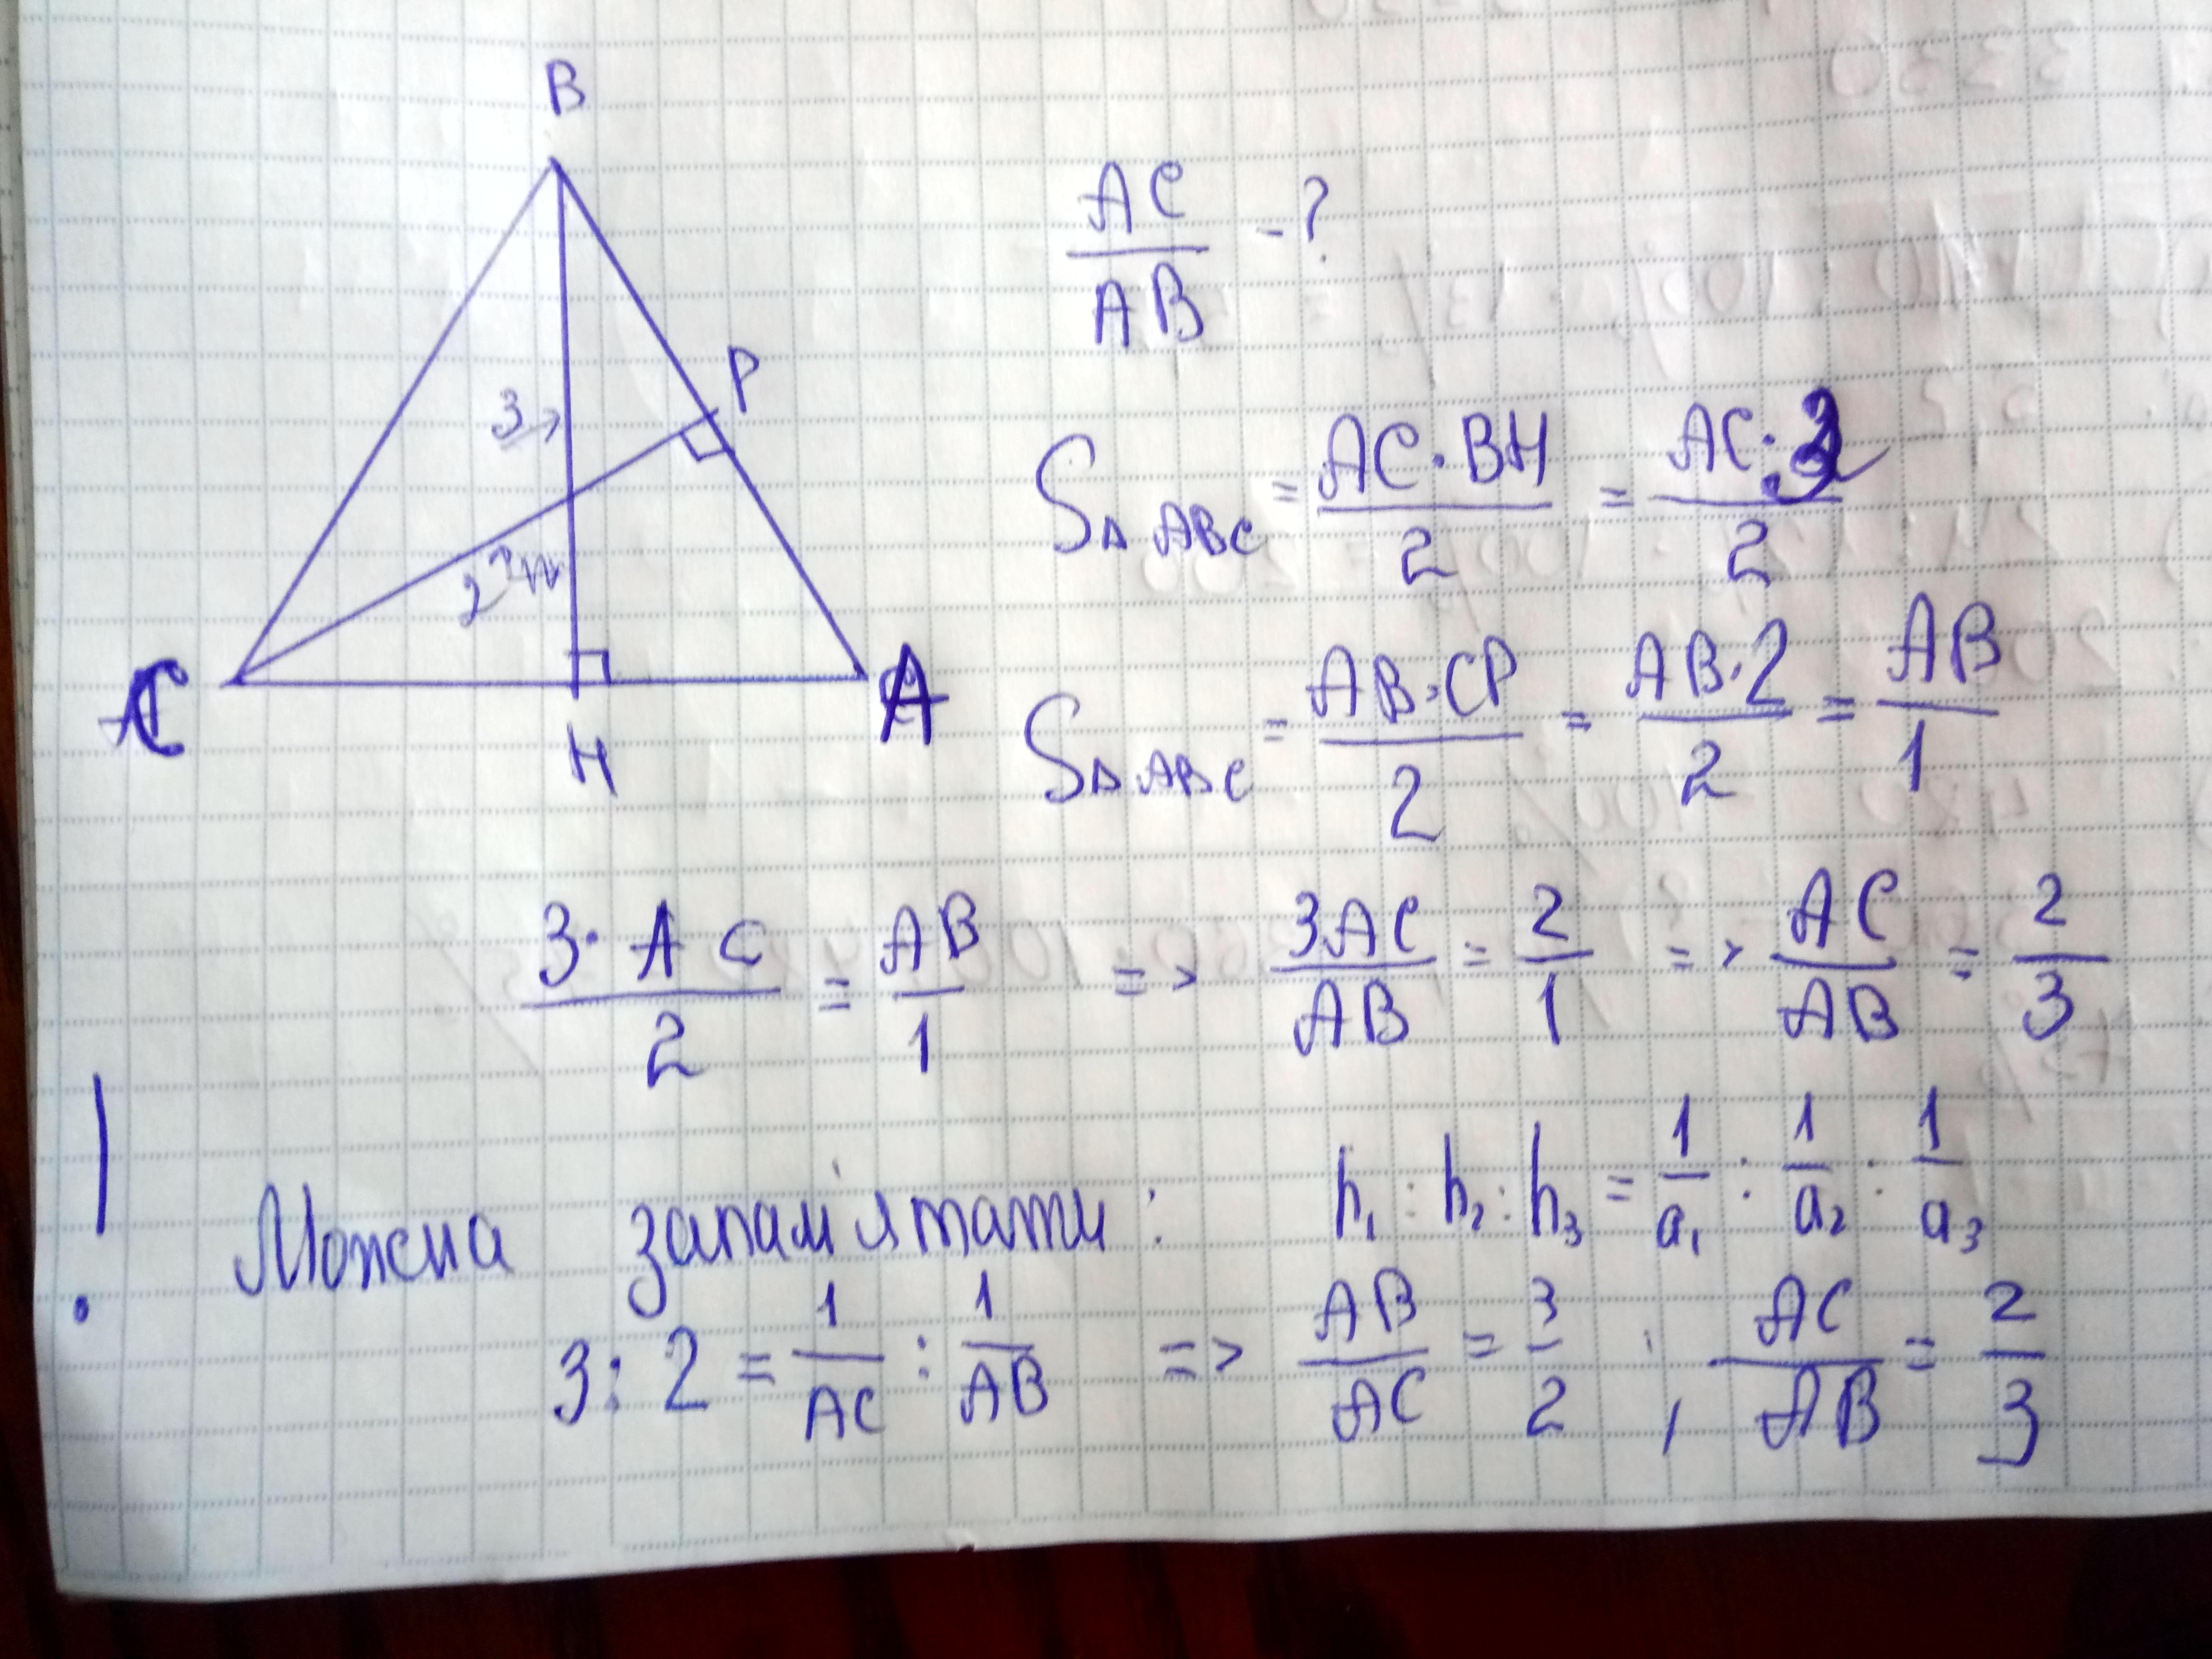 B
AC/AB - ?
P
3
S△ABC = AC·BH/2 = AC·3/2
2
C A
H
S△ABC = AB·CP/2 = AB·2/2 = AB/1
3·AC/2 = AB/1 => 3AC/AB = 2/1 => AC/AB = 2/3
! Можна запам'ятати: h₁ : h₂ : h₃ = 1/a₁ : 1/a₂ : 1/a₃
3 : 2 = 1/AC : 1/AB => AB/AC = 3/2 , AC/AB = 2/3